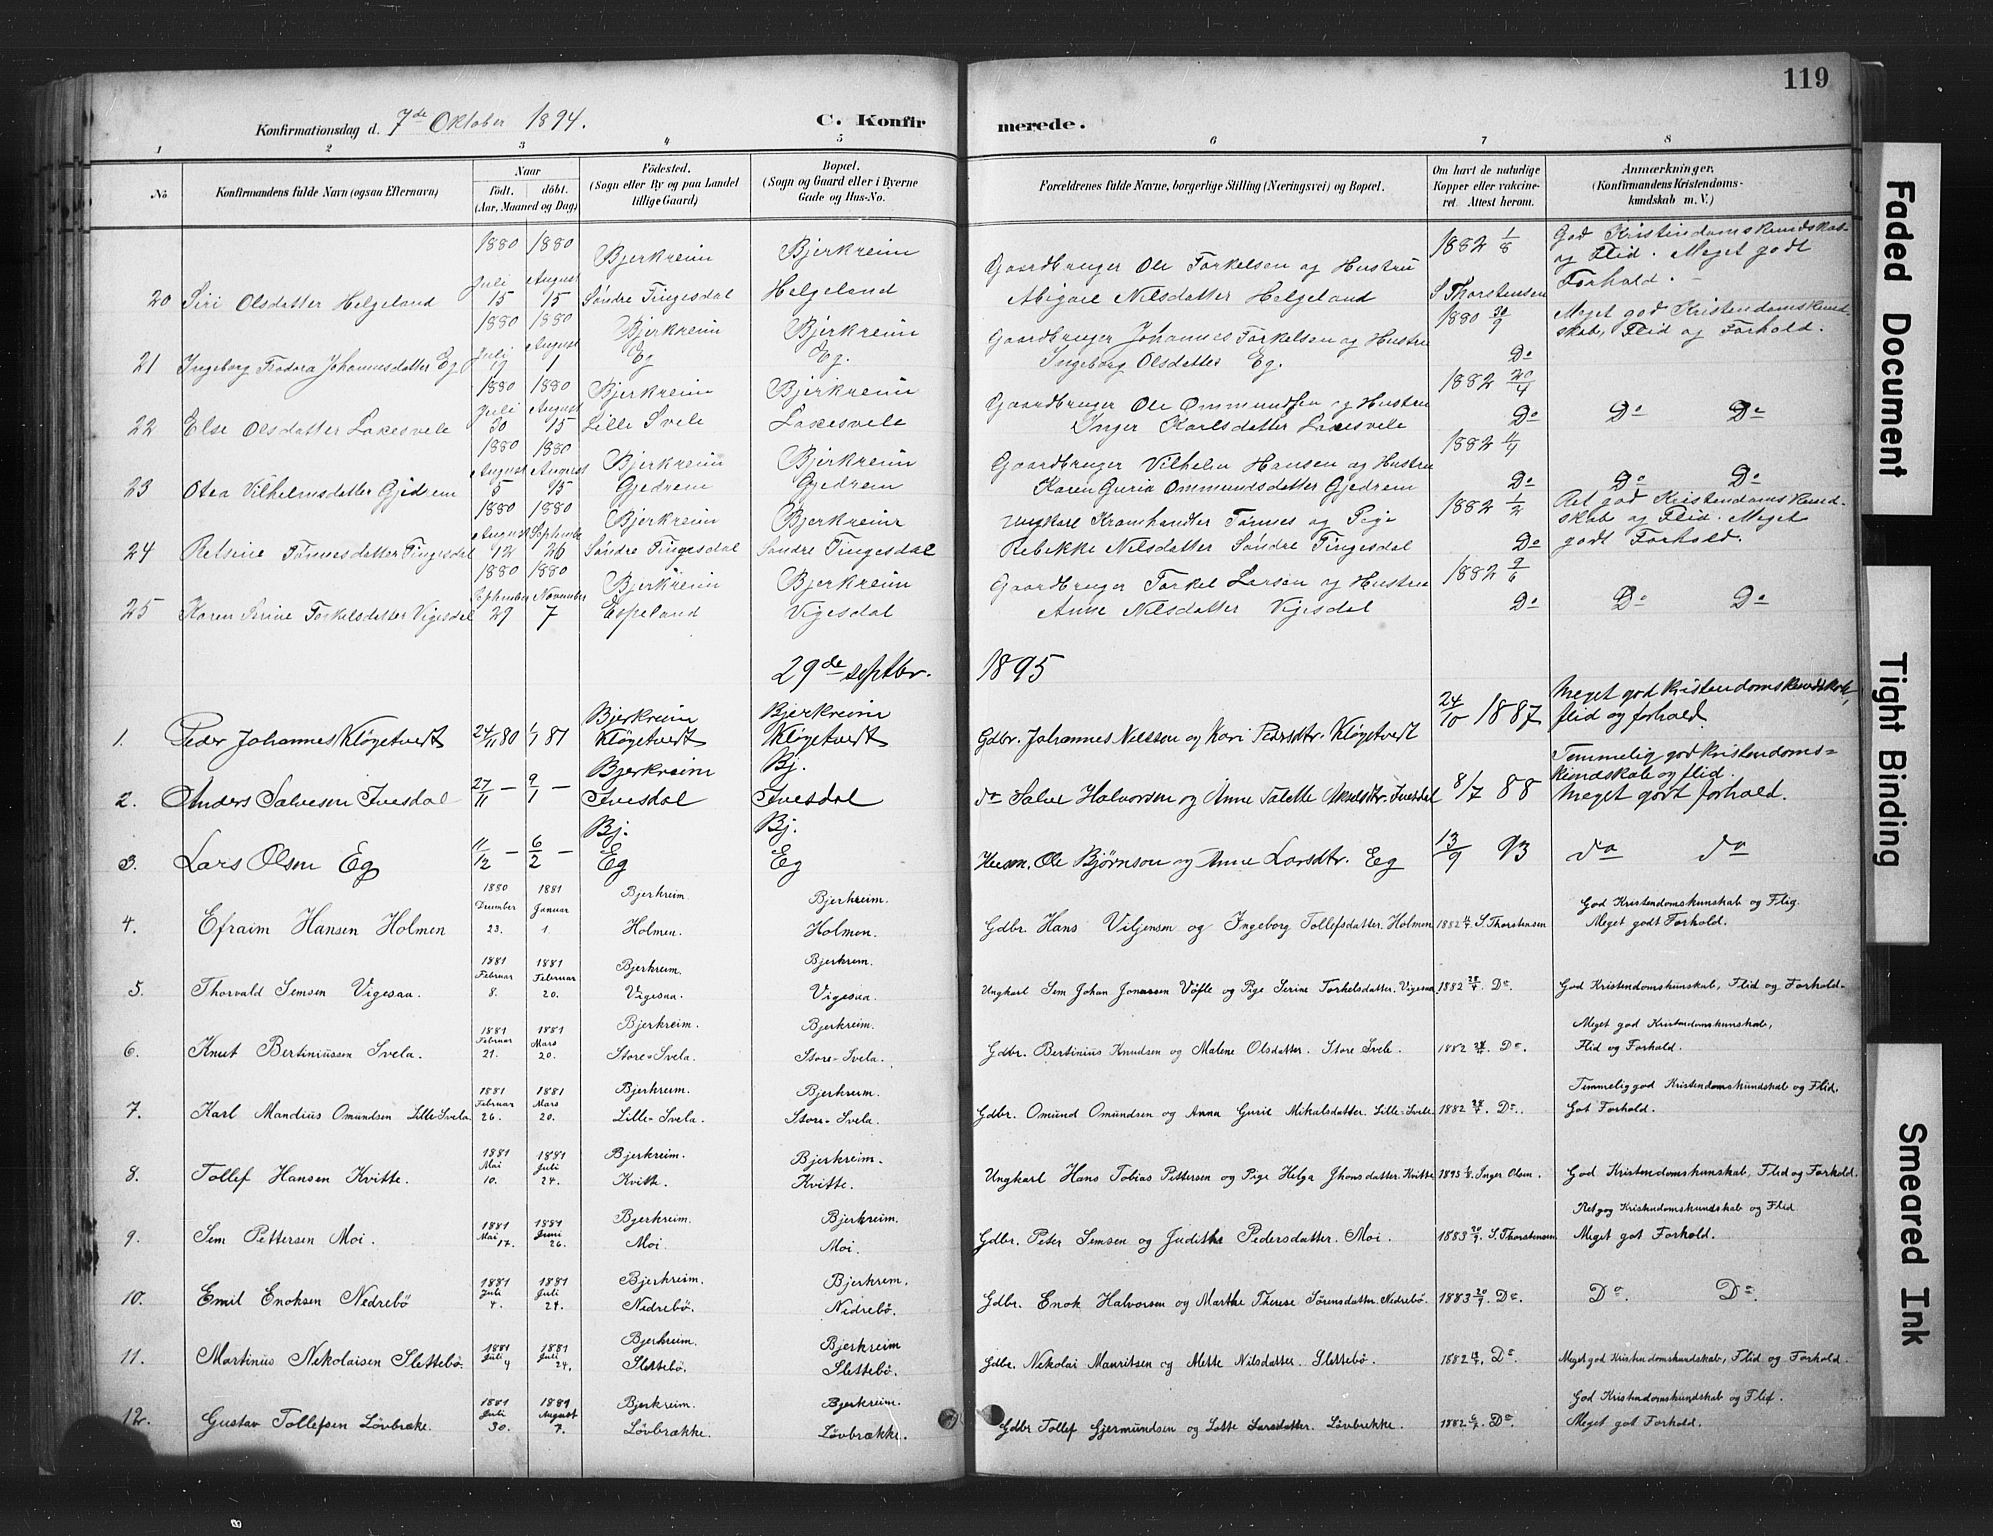 119
Konfirmationsdag d. 7de Oktober 1894.
C. Konfirmerede.
1 2 3 4 5 6 7 8
No.
Konfirmandens fulde Navn (ogsaa Efternavn)
Naar
födt. döbt.
(Aar, Maaned og Dag)
Födested.
(Sogn eller By og paa Landet
tillige Gaard)
Bopæl.
(Sogn og Gaard eller i Byerne
Gade og Hus-No.
Forældrenes fulde Navne, borgerlige Stilling (Næringsvei) og Bopæl.
Om havt de naturlige
Kopper eller vakcine-
ret. Attest herom.
Anmærkninger.
(Konfirmandens Kristendoms-
kundskab m. V.)
20 Siri Olsdatter Helgeland 1880 Juli 15 1880 August 15 Bjerkreim Søndre Tingesdal Bjerkreim Helgeland Gaardbruger Ole Torkelsen og Hustru Abigael Nilsdatter Helgeland 1882 1/8 S Thorstensen God Kristendomskundskab og Flid. Meget godt Forhold.
21 Ingeborg Teodora Johannesdatter Eg 1880 Juli 19 1880 August 1 Bjerkreim Eg Bjerkreim Eg. Gaardbruger Johannes Torkelsen og Hustru Ingeborg Olsdatter Eg. 1880 30/9 Do Meget god Kristendomskundskab, Flid og Forhold.
22 Else Olsdatter Laxesvele 1880 Juli 30 1880 August 15 Bjerkreim Lille Svele Bjerkreim Laxesvele Gaardbruger Ole Ommundsen og Hustru Inger Karlsdatter Laxesvele 1882 20/4 Do Do Do
23 Otea Vilhelmsdatter Gjedrem 1880 August 5 1880 August 15 Bjerkreim Gjedrem Bjerkreim Gjedrem Gaardbruger Vilhelm Hansen og Hustru Karen Guria Ommundsdatter Gjedrem 1882 Do Do Do
24 Retsine Tønnesdatter Tingesdal 1880 August 12 1880 September 26 Bjerkreim Søndre Tingesdal Bjerkreim Søndre Tingesdal Ungkarl Kramhandler Tønnes og Pige Rebekke Nilsdatter Søndre Tingesdal 1882 1/2 Do Ret god Kristendomskundskab og Flid. Meget godt Forhold.
25 Karen Serine Torkelsdatter Vigesdal 1880 September 27 1880 November 7 Bjerkreim Espeland Bjerkreim Vigesdal Gaardbruger Torkel Larsen og Hustru Anne Nilsdatter Vigesdal 1882 9/6 Do Do Do
29de septbr. 1895
1. Peder Johannes Kløgetvedt 24/11 80 81 Bjerkreim Kløgetvedt Bjerkreim Kløgetvedt Gdbr. Johannes Nilsson og Kari Pedersdtr. Kløgetvedt 24/10 1887 Meget god kristendomskundskab, flid og forhold.
2. Anders Salvesen Ivesdal 27/11 - 9/1 - Bjerkreim Ivesdal Bj. Ivesdal do Salve Halvorsen og Anne Talette Akseldtr. Ivesdal 8/7 88 Temmelig god kristendomskundskab og flid. Meget godt forhold.
3. Lars Olsen Eg 11/12 - 6/2 - Bj. Eg Bj. Eg Husm. Ole Bjørnson og Anne Larsdtr. Eg 13/9 93 do do
4. Efraim Hansen Holmen 1880 December 23. 1881 Januar 1. Bjerkreim. Holmen. Bjerkreim. Holmen. Gdbr. Hans Viljensen og Ingeborg Tollefsdatter. Holmen 1882 S. Thorstensen God Kristendomskunskab og Flig. Meget godt Forhold.
5. Thorvald Semsen Vigesaa. 1881 Februar 8. 1881 Februar 20. Bjerkreim. Vigesaa. Bjerkreim. Vigesaa. Ungkarl Sem Johan Jonassen Vøfle og Pige Serine Torkelsdatter. Vigesaa. 1882 Do. God Kristendomskunskab, Flid og Forhold.
6. Knut Bertiniussen Svela. 1881 Februar 21. 1881 Mars 20. Bjerkreim. Store-Svela. Bjerkreim. Store-Svela. Gdbr. Bertinius Knudsen og Malene Olsdatter. Store Svele. 1882 Do. Meget god Kristendomskunskab, Flid og Forhold.
7. Karl Mandius Omundsen Lille-Svela 1881 Februar 26. 1881 Mars 20. Bjerkreim. Lille-Svela. Bjerkreim. Store-Svela. Gdbr. Omund Omundsen og Anna Gurie Mikalsdatter. Lille-Svele 1882 Do. Temmelig god Kristendomskundskab og Flid. Got Forhold.
8. Tollef Hansen Kvitte. 1881 Mai 10. 1881 Juli 24. Bjerkreim. Kvitte. Bjerkreim. Kvitte. Ungkarl Hans Tobias Pettersen og Pige Helga Jhonsdatter. Kvitte 1895 Inger Olsen. God Kristendomskunskab, Flid og Forhold.
9. Sem Pettersen Moi. 1881 Mai 17. 1881 Juni 26. Bjerkreim. Moi. Bjerkreim. Moi. Gdbr. Peter Semsen og Judithe Pedersdatter. Moi. 1883 20/9 S. Thorstensen Ret gog Kristendomskundskab og Flid Meget got Forhold.
10. Emil Enoksen Nedrebö 1881 Juli 4. 1881 Juli 24. Bjerkreim. Nedrebö. Bjerkreim. Nedrebö. Gdbr. Enok Halvorsen og Marthe Therese Sörensdatter. Nedrebö. 1883 20/9 Do. Do. Do.
11. Martinus Nekolaisen Slettebö. 1881 Juli 4 1881 Juli 24. Bjerkreim. Slettebö. Bjerkreim Slettebö. Gdbr. Nekolai Mauritsen og Mette Nilsdatter. Slettebö. 1882 Do. Meget god Kristendomskundskab, Flid og Forhold.
12. Gustav Tollefsen Lövbræke. 1881 Juli 30. 1881 August 7. Bjerkreim. Lövbrække. Bjerkreim. Lövbrække. Gdbr Tollef Gjermundsen og Lotte Larsdatter. Lövbrekke. 1882 Do. God Kristendomskundskab og Flif. Meget got Forhold.
Faded Document
Tight Binding
Smeared Ink